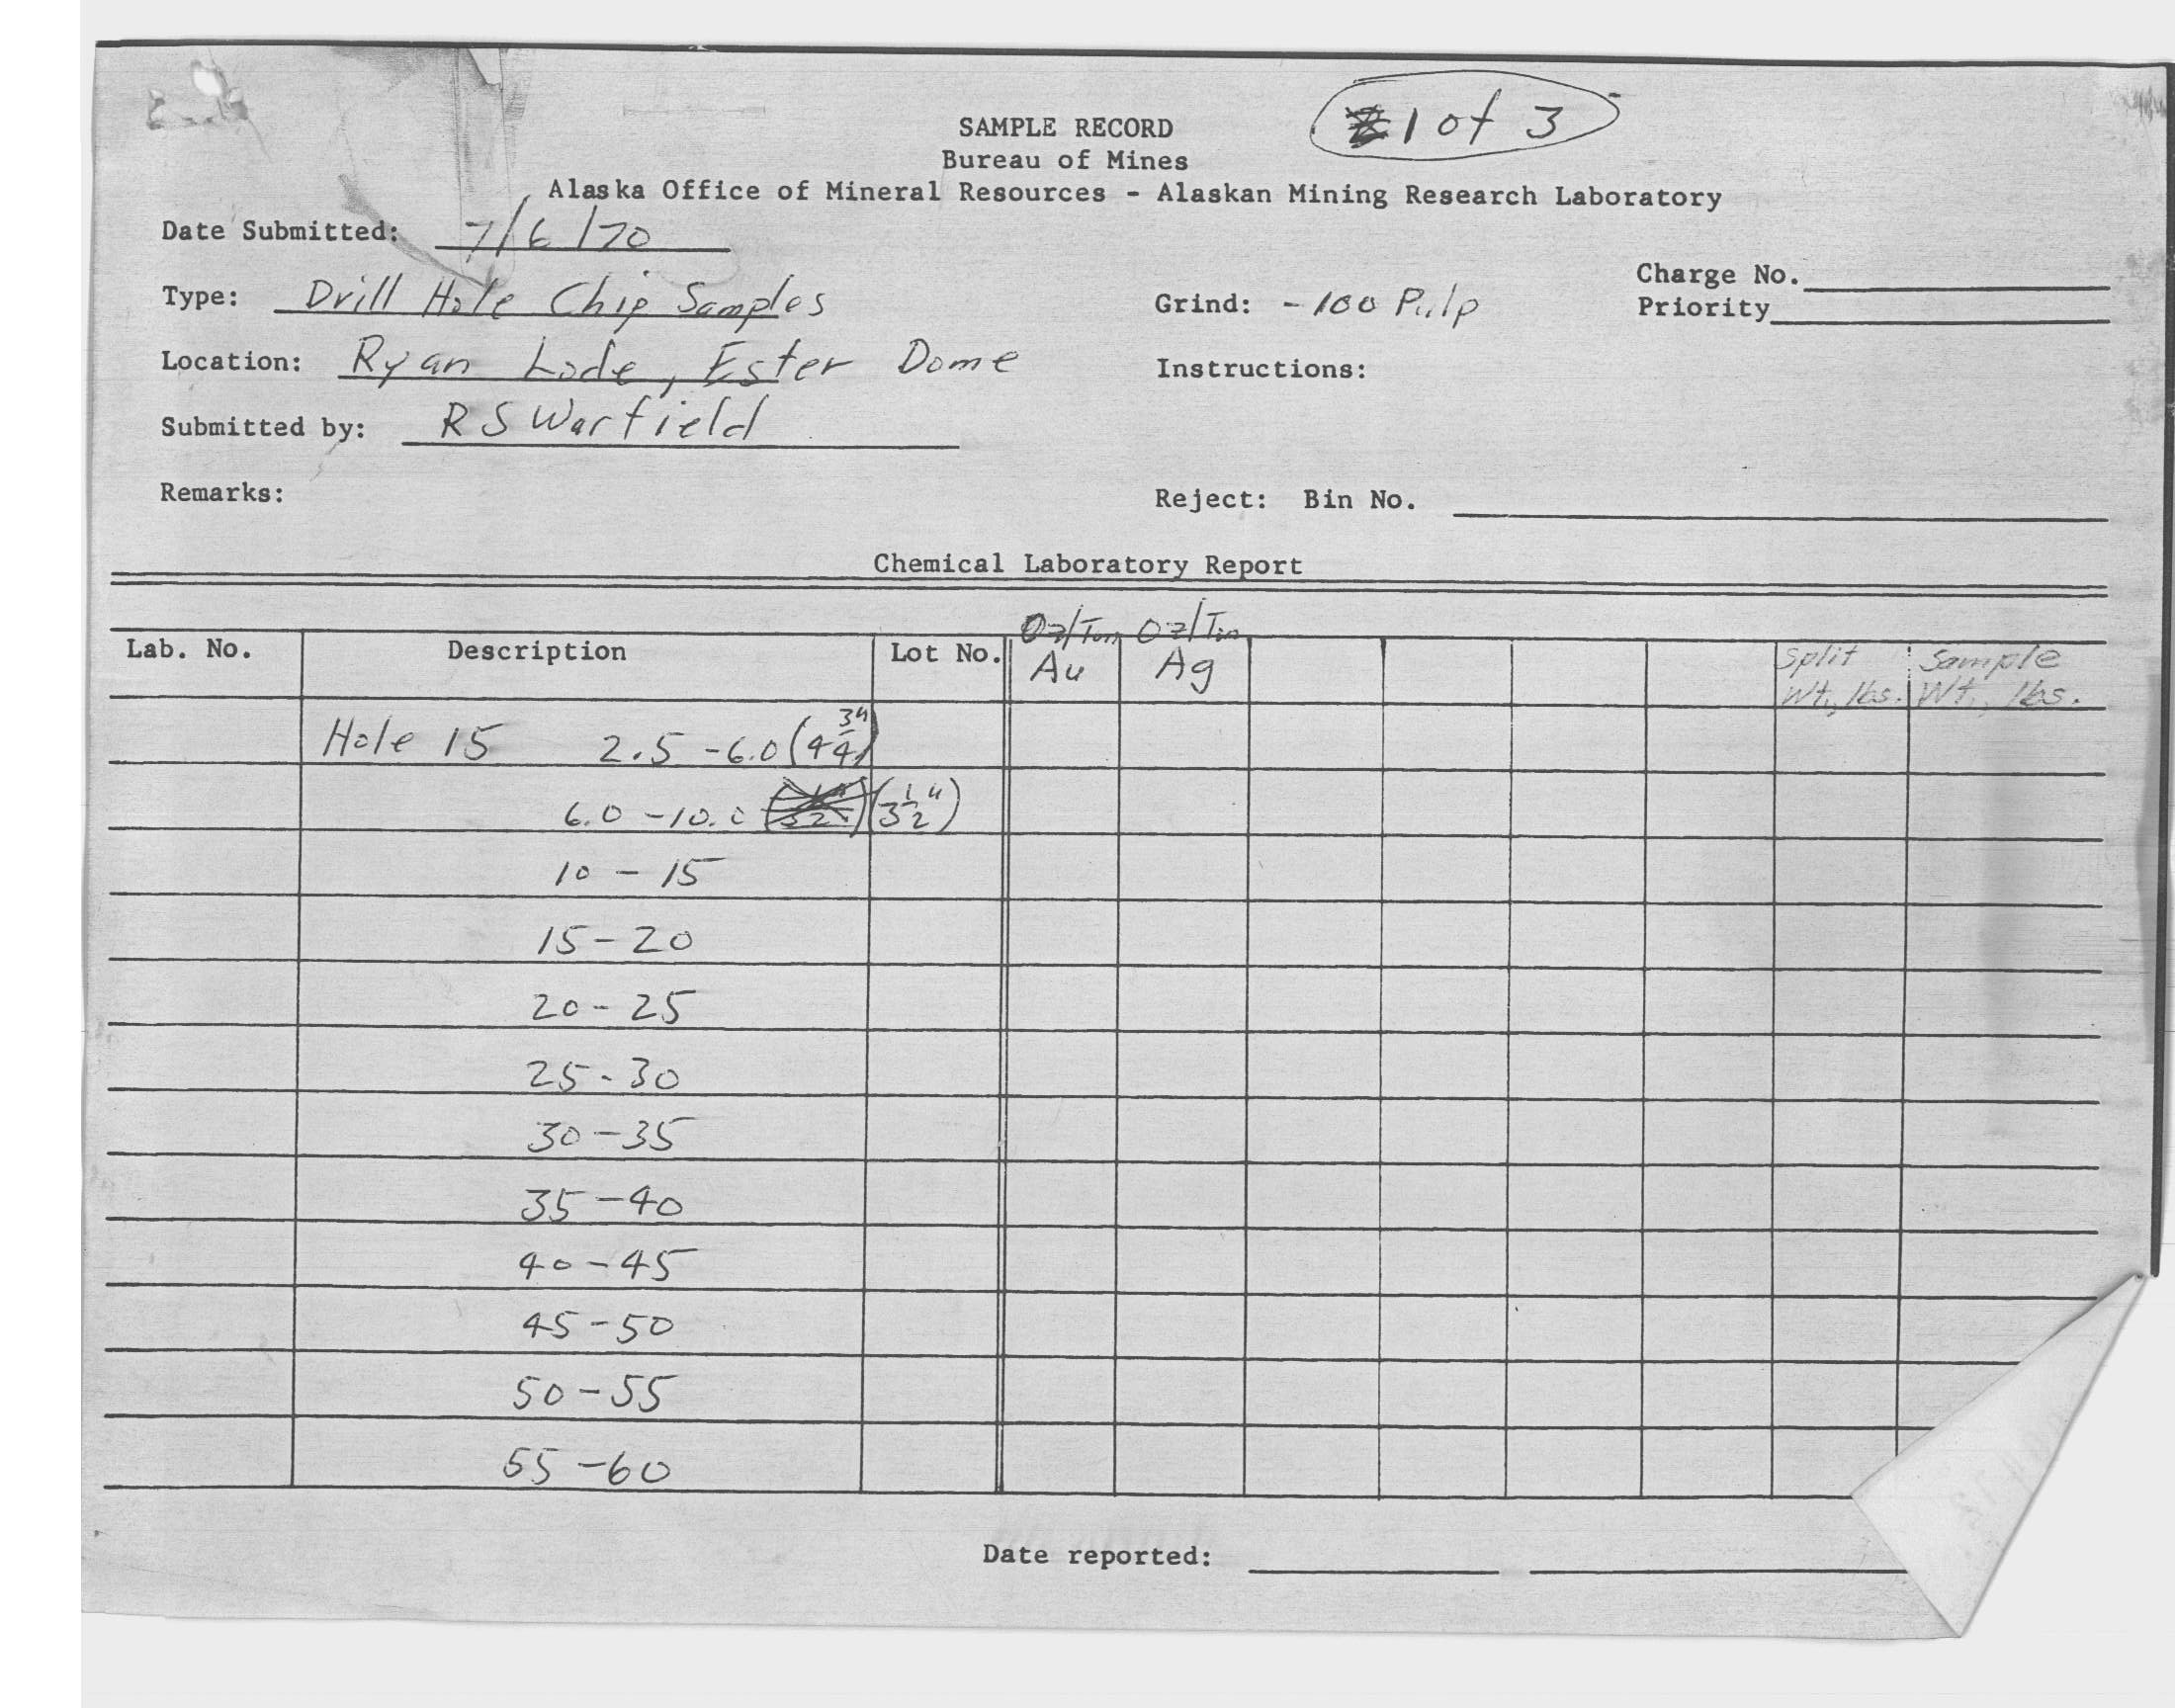 1 of 3
SAMPLE RECORD
Bureau of Mines
Alaska Office of Mineral Resources - Alaskan Mining Research Laboratory
Date Submitted: 7/6/70
Charge No.
Type: Drill Hole Chip Samples Grind: -100 Pulp Priority
Location: Ryan Lode, Ester Dome Instructions:
Submitted by: R S Warfield
Remarks: Reject: Bin No.
Chemical Laboratory Report
Oz/Ton Oz/Ton
Lab. No. Description Lot No. Au Ag Split Wt., lbs. Sample Wt., lbs.
Hole 15 2.5 - 6.0 (4 3/4")
6.0 - 10.0 (3 1/2")
10 - 15
15 - 20
20 - 25
25 - 30
30 - 35
35 - 40
40 - 45
45 - 50
50 - 55
55 - 60
Date reported: